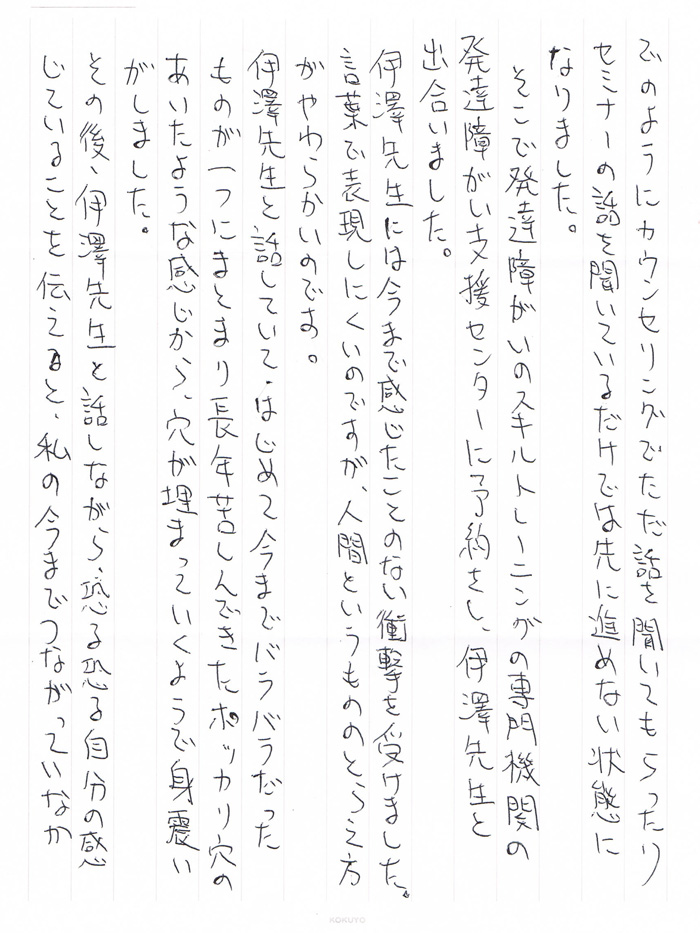 でのようにカウンセリングでただ話を聞いてもらったり
セミナーの話を聞いているだけでは先に進めない状態に
なりました。
そこで発達障がいのスキルトレーニングの専門機関の
発達障がい支援センターに予約をし、伊澤先生と
出合いました。
伊澤先生には今まで感じたことのない衝撃を受けました。
言葉で表現しにくいのですが、人間というもののとらえ方
がやわらかいのです。
伊澤先生と話していて、はじめて今までバラバラだった
ものが一つにまとまり長年苦しんできたポッカリ穴の
あいたような感じから、穴が埋まっていくようで身震い
がしました。
その後、伊澤先生と話しながら、恐る恐る自分の感
じていることを伝えると、私の今までつながっていなか
KOKUYO